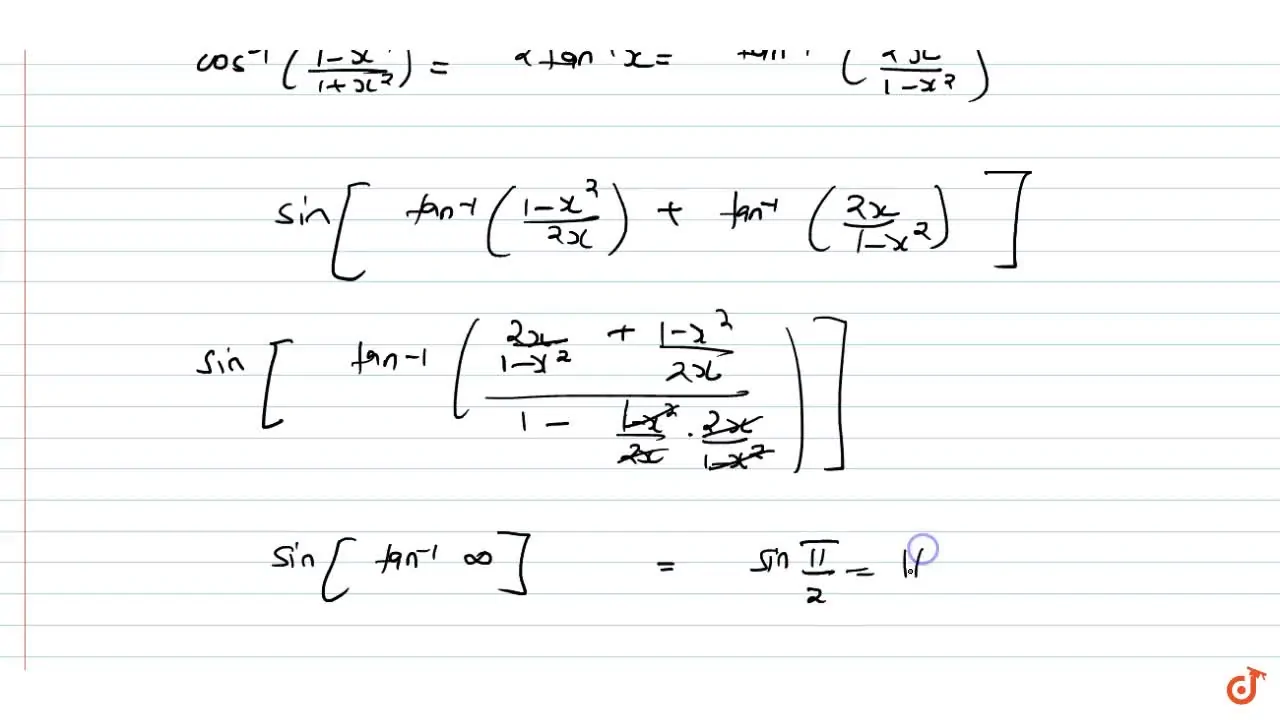 cos⁻¹ (1-x²/1+x²) = 2tan⁻¹x = tan⁻¹ (2x/1-x²)
sin[ tan⁻¹ (1-x²/2x) + tan⁻¹ (2x/1-x²) ]
sin [ tan-1 ( 2x/1-x² + 1-x²/2x / 1 - 1-x²/2x . 2x/1-x² ) ]
sin [ tan⁻¹ ∞ ] = sin π/2 =